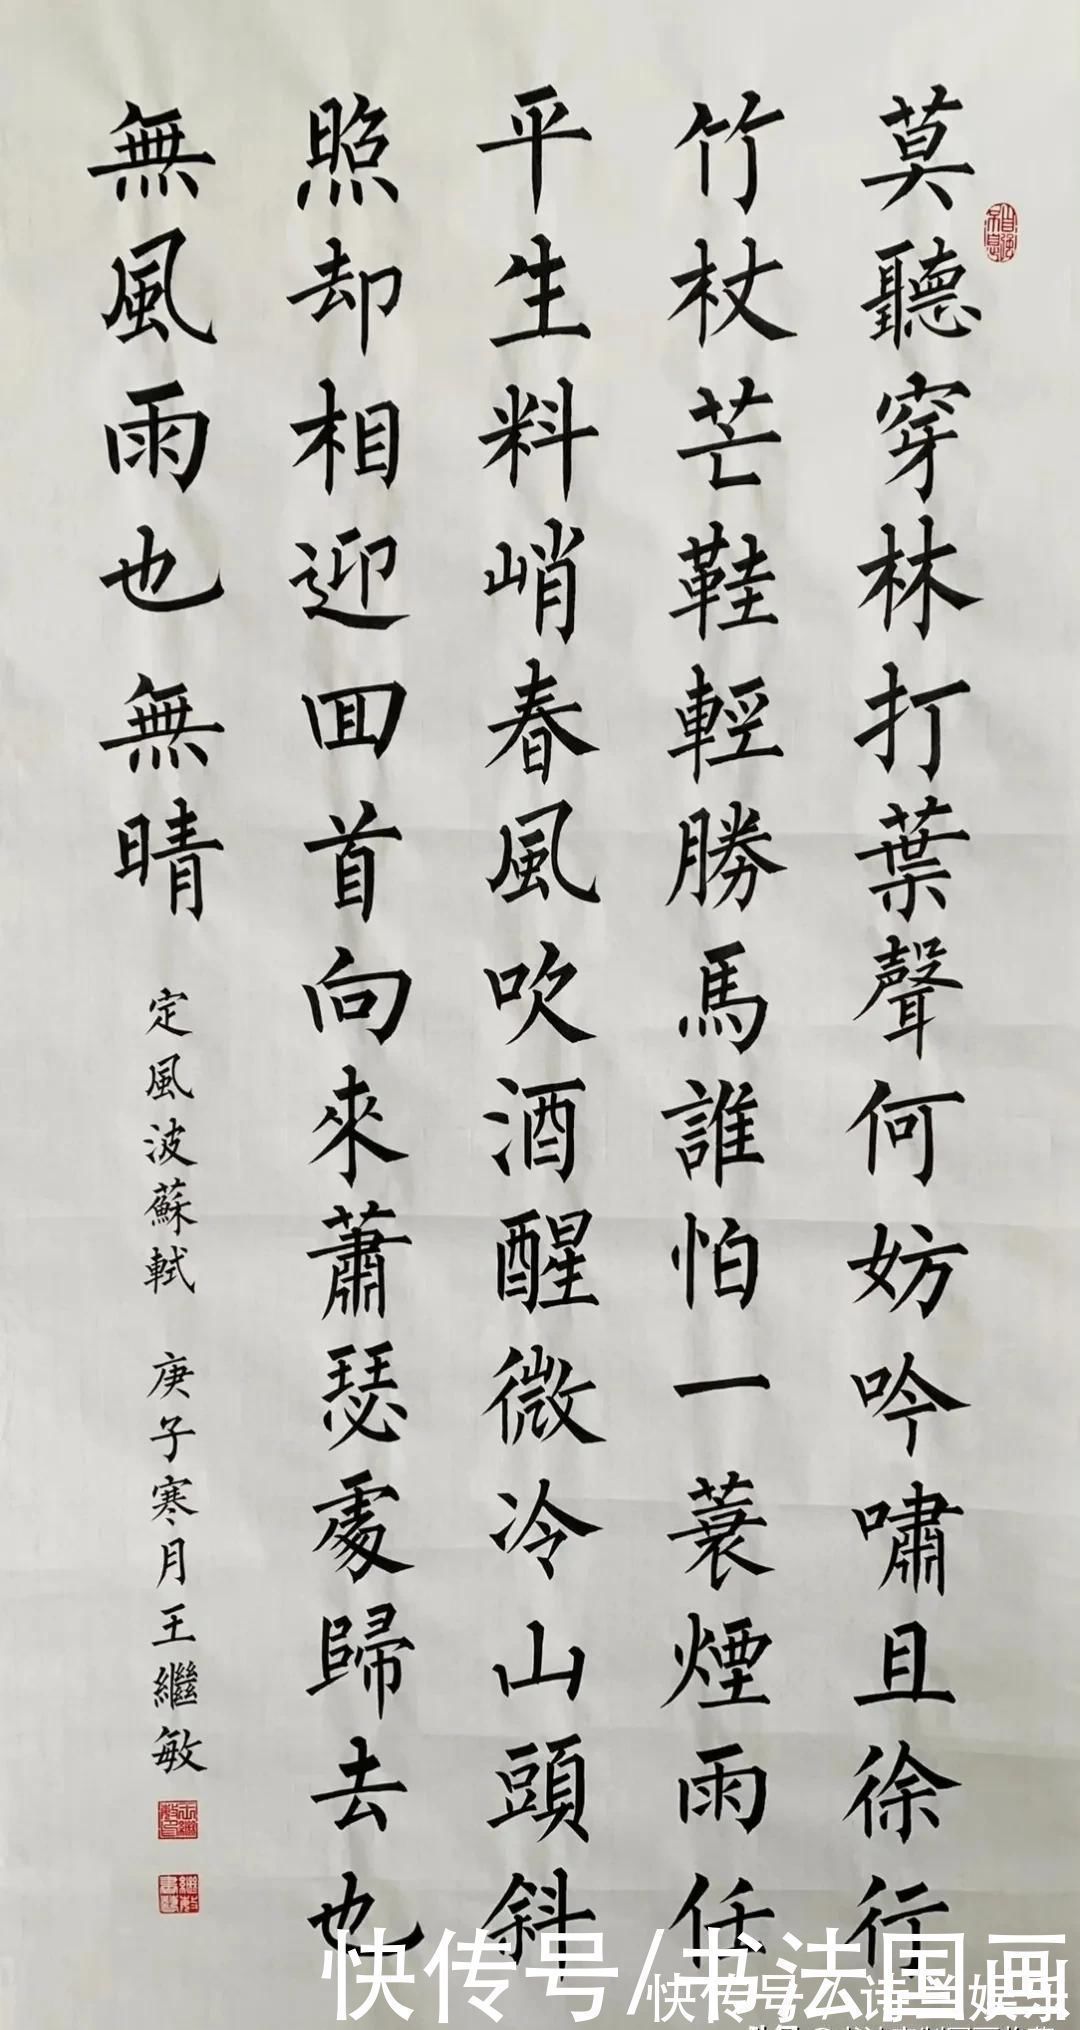 莫聽穿林打葉聲何妨吟嘯且徐行
竹杖芒鞋輕勝馬誰怕一蓑煙雨任
平生料峭春風吹酒醒微冷山頭斜
照却相迎回首向來蕭瑟處歸去也
無風雨也無晴
定風波蘇軾 庚子寒月王繼敏
快传号/书法国画
快传号/诗兰娱乐